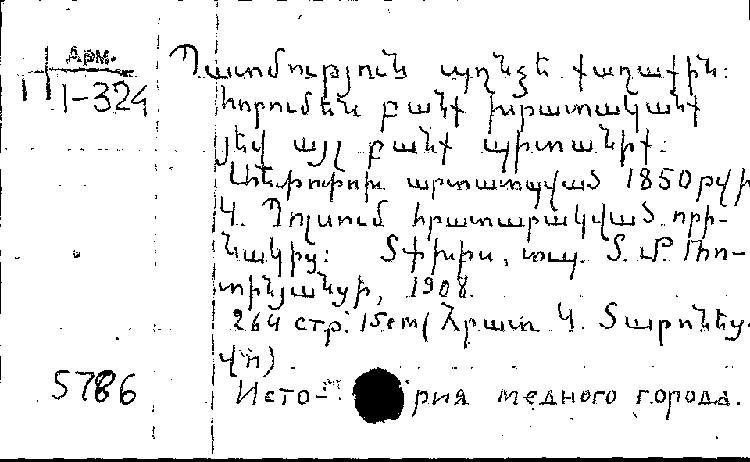 Арм.
II 1-324
Պատմություն պղնձե քաղաքին։
հորումեն բանք խրատականք
յեվ այլ բանք պիտանիք։
Անփոփոխ արտատպված 1850 թվի
Կ. Պոլսում հրատարակված որի-
նակից։ Տփխիս, տպ. Տ. Մ. Ռո-
տինյանցի, 1908.
264 стр. 15cm (Հրատ. Կ. Տարոնեցվո)
5786
Исто- рия медного города.